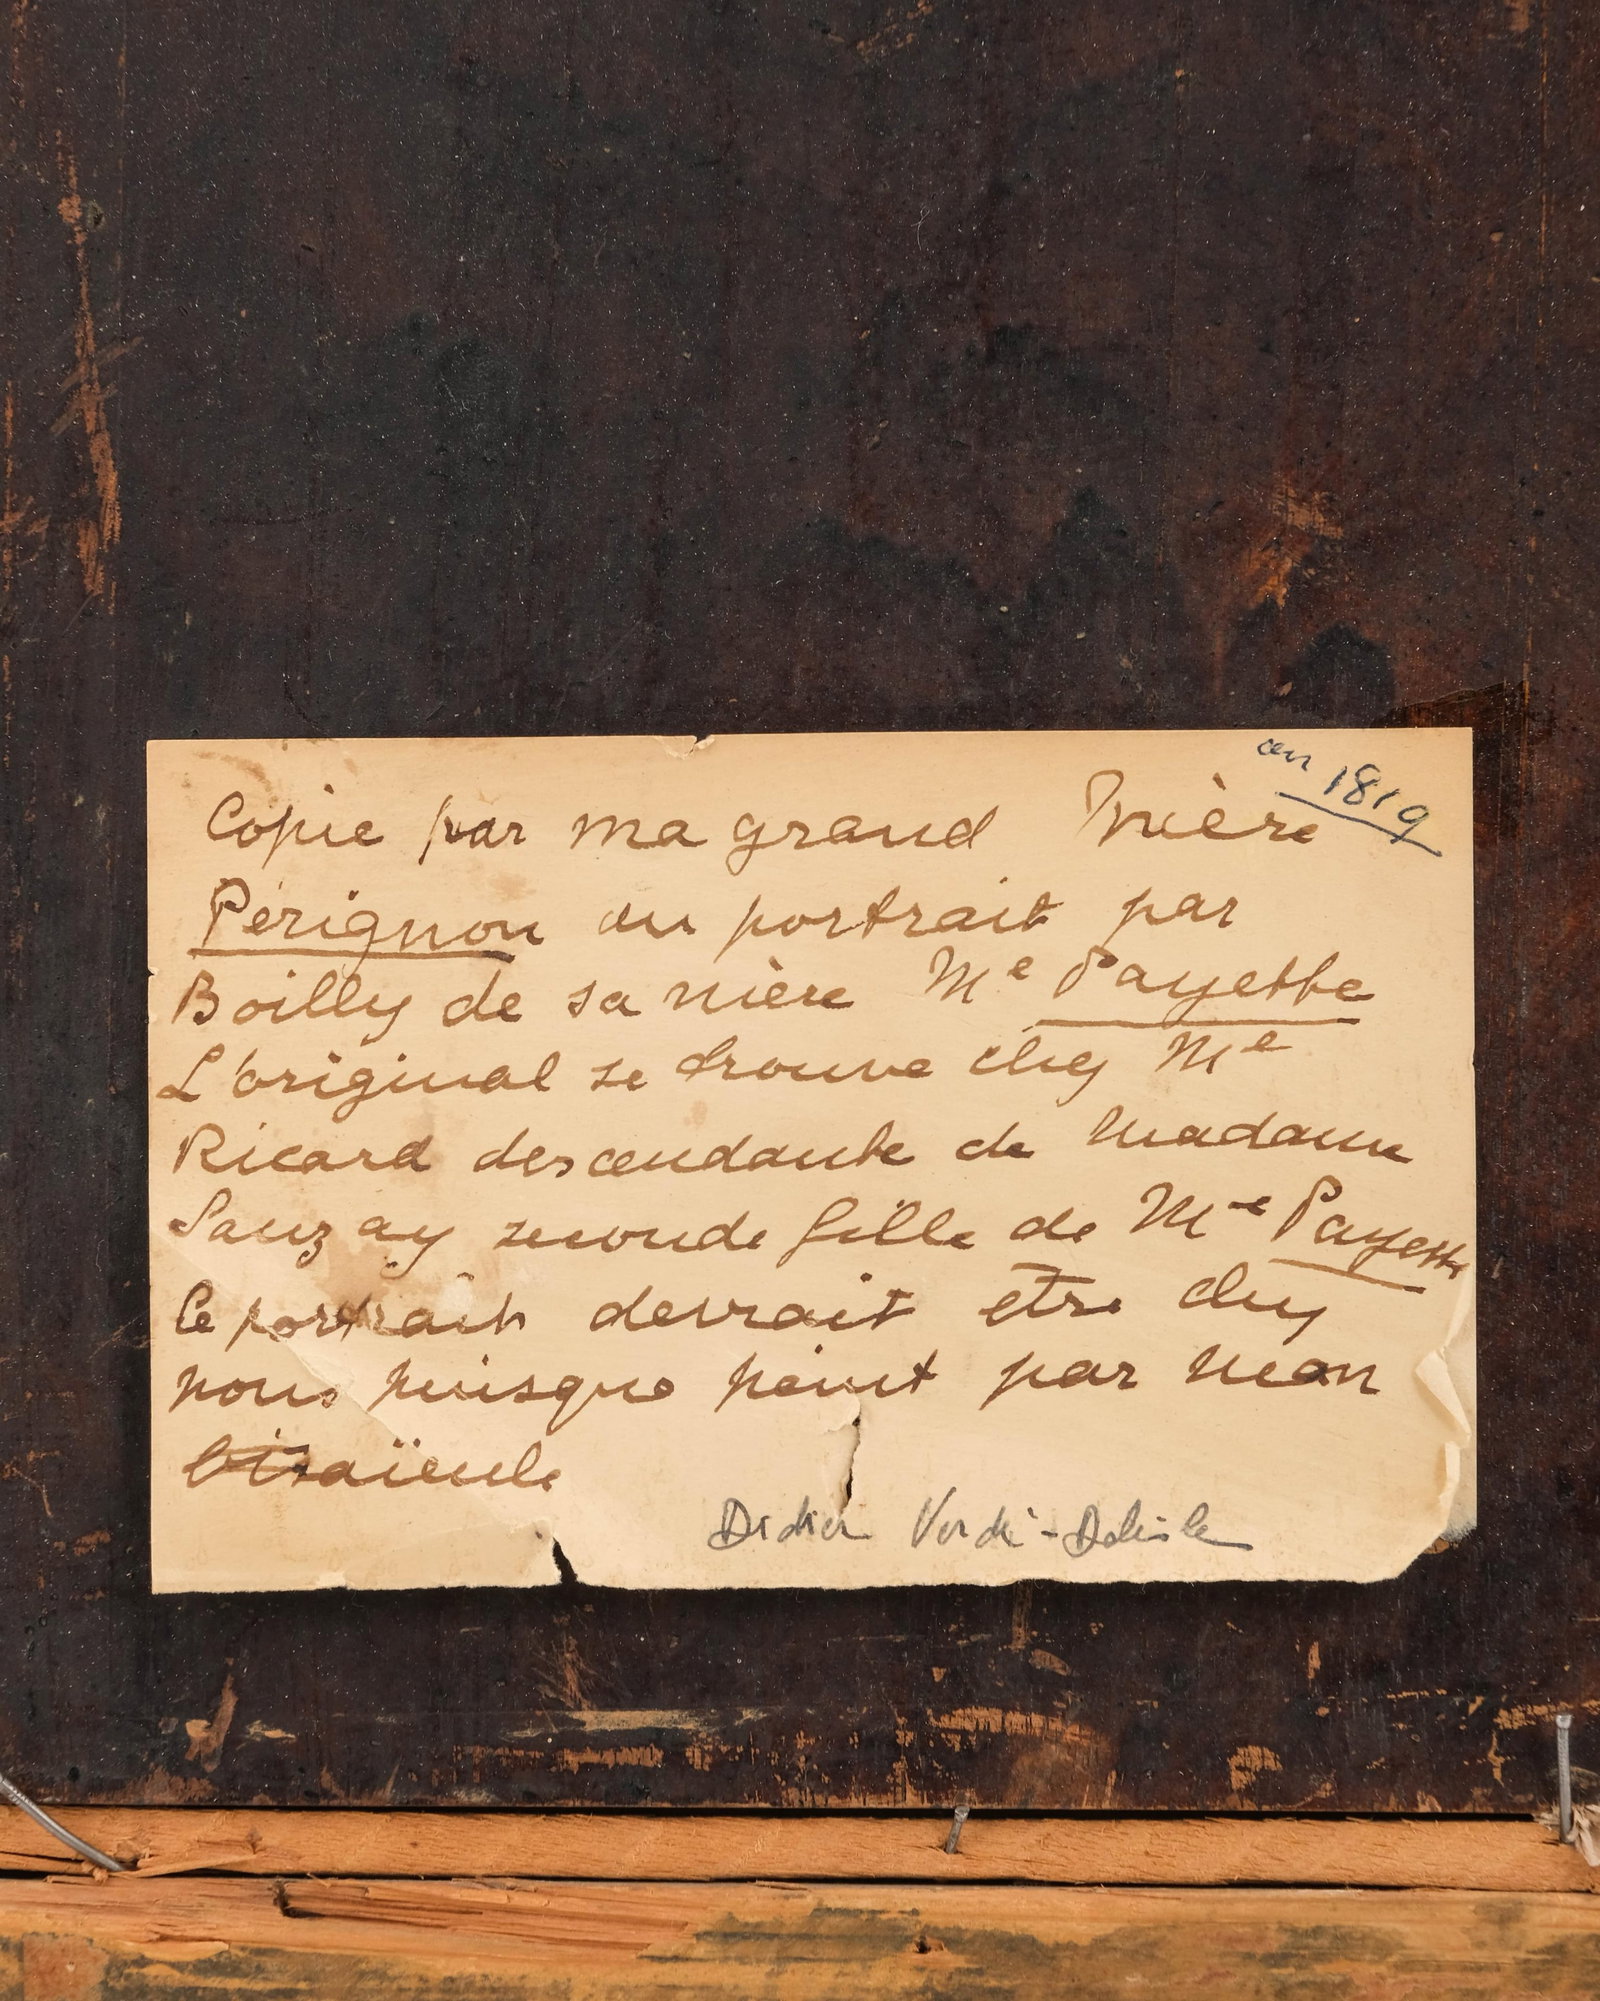 en 1819
Copie par ma grand Mère
Pérignon du portrait par
Boilly de sa mère Me Payette
L'original se trouve chez Me
Ricard descendante de Madame
Sauzay seconde fille de Me Payette
le portrait devrait etre chez
nous puisque peint par mon
bisaïeule
Didier Verdé-Delisle